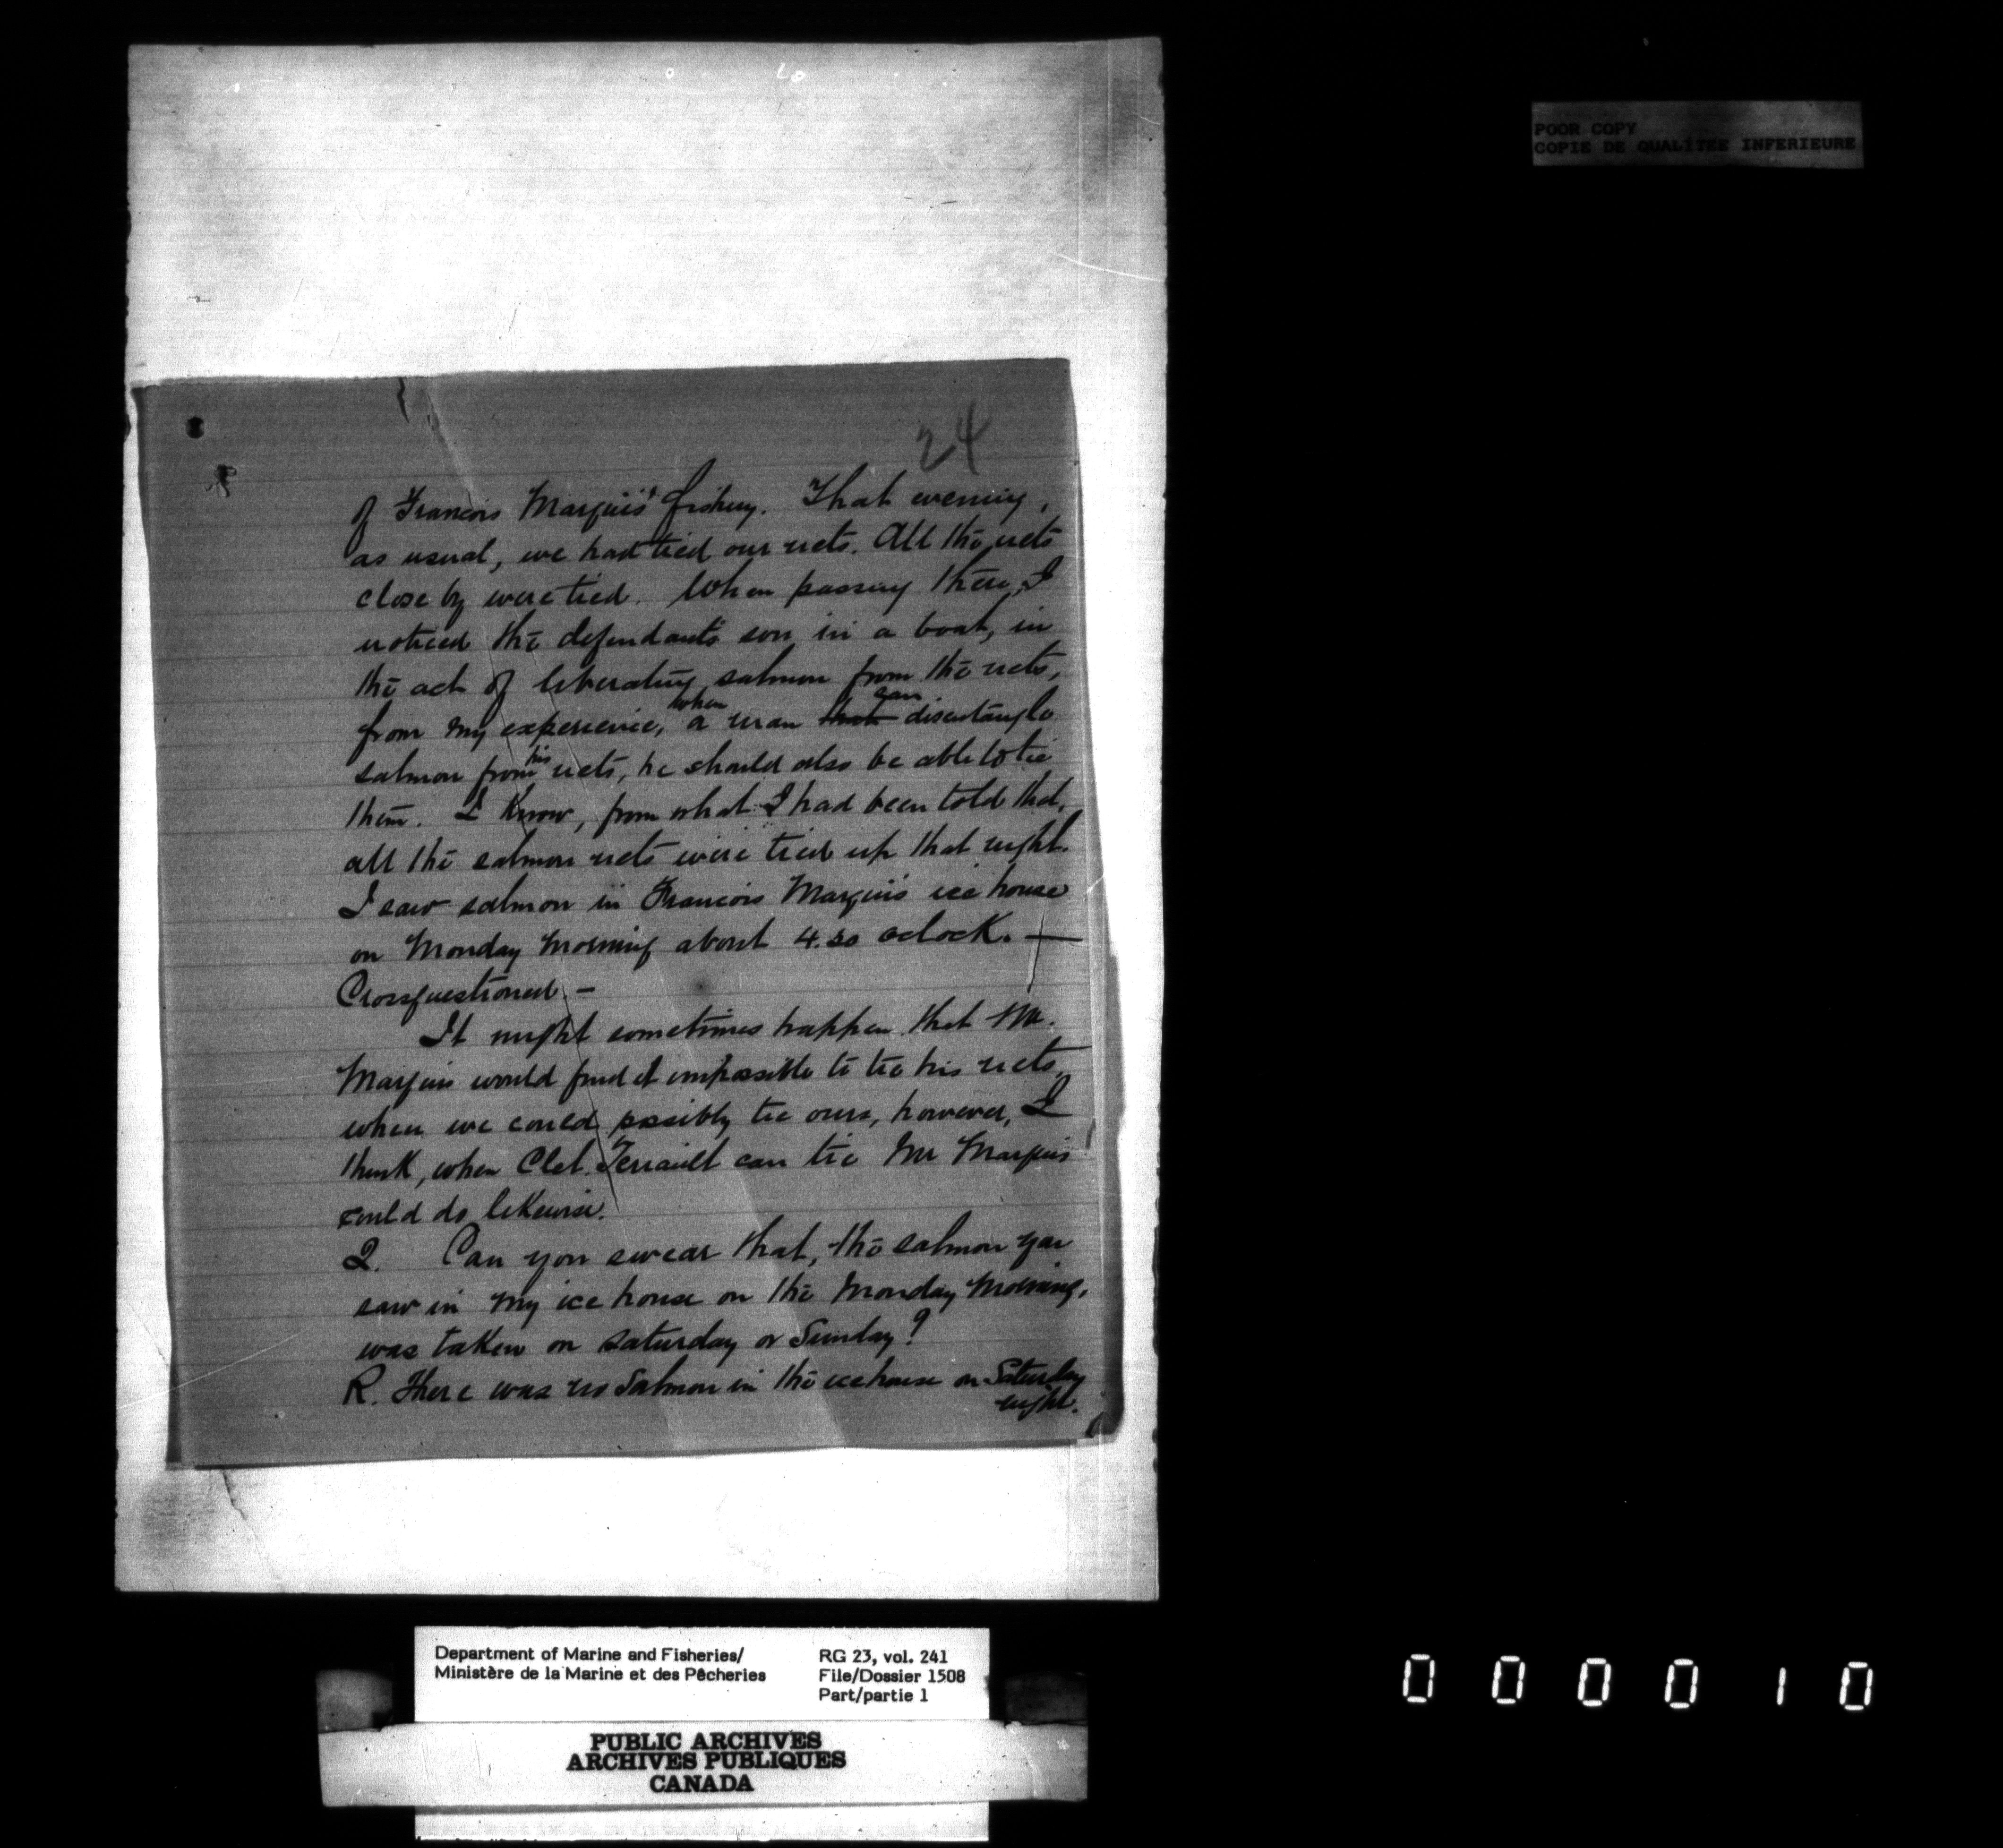 POOR COPY
COPIE DE QUALITEE INFERIEURE
24
of Francois Marquis' fishery. That evening,
as usual, we had tied our nets. All the nets
close by were tied. When passing there, I
noticed the defendant's son in a boat, in
the act of liberating salmon from the nets,
from my experience, when a man that can disentangle
salmon from his nets, he should also be able to tie
them. I know, from what I had been told that,
all the salmon nets were tied up that night.
I saw salmon in Francois Marquis ice house
on Monday morning about 4.30 oclock. —
Crossquestioned. —
It might sometimes happen that Mr.
Marquis would find it impossible to tie his nets,
when we could possibly tie ours, however, I
think, when Clet. Terriault can tie Mr Marquis
could do likewise.
Q. Can you swear that, the salmon you
saw in my ice house on the Monday morning,
was taken on Saturday or Sunday?
R. There was no salmon in the icehouse on Saturday
night.
Department of Marine and Fisheries/
Ministère de la Marine et des Pêcheries
RG 23, vol. 241
File/Dossier 1508
Part/partie 1
PUBLIC ARCHIVES
ARCHIVES PUBLIQUES
CANADA
000010